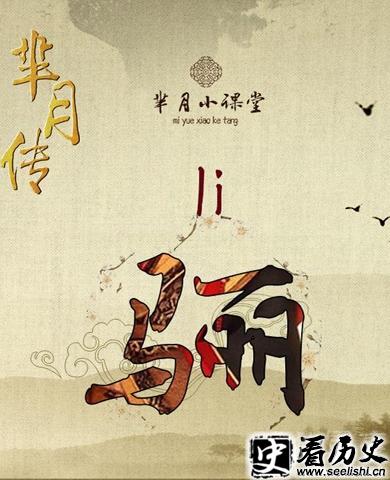 芈月传
芈月小课堂
mi yue xiao ke tang
li
骊
史看历史
www.seelishi.cn